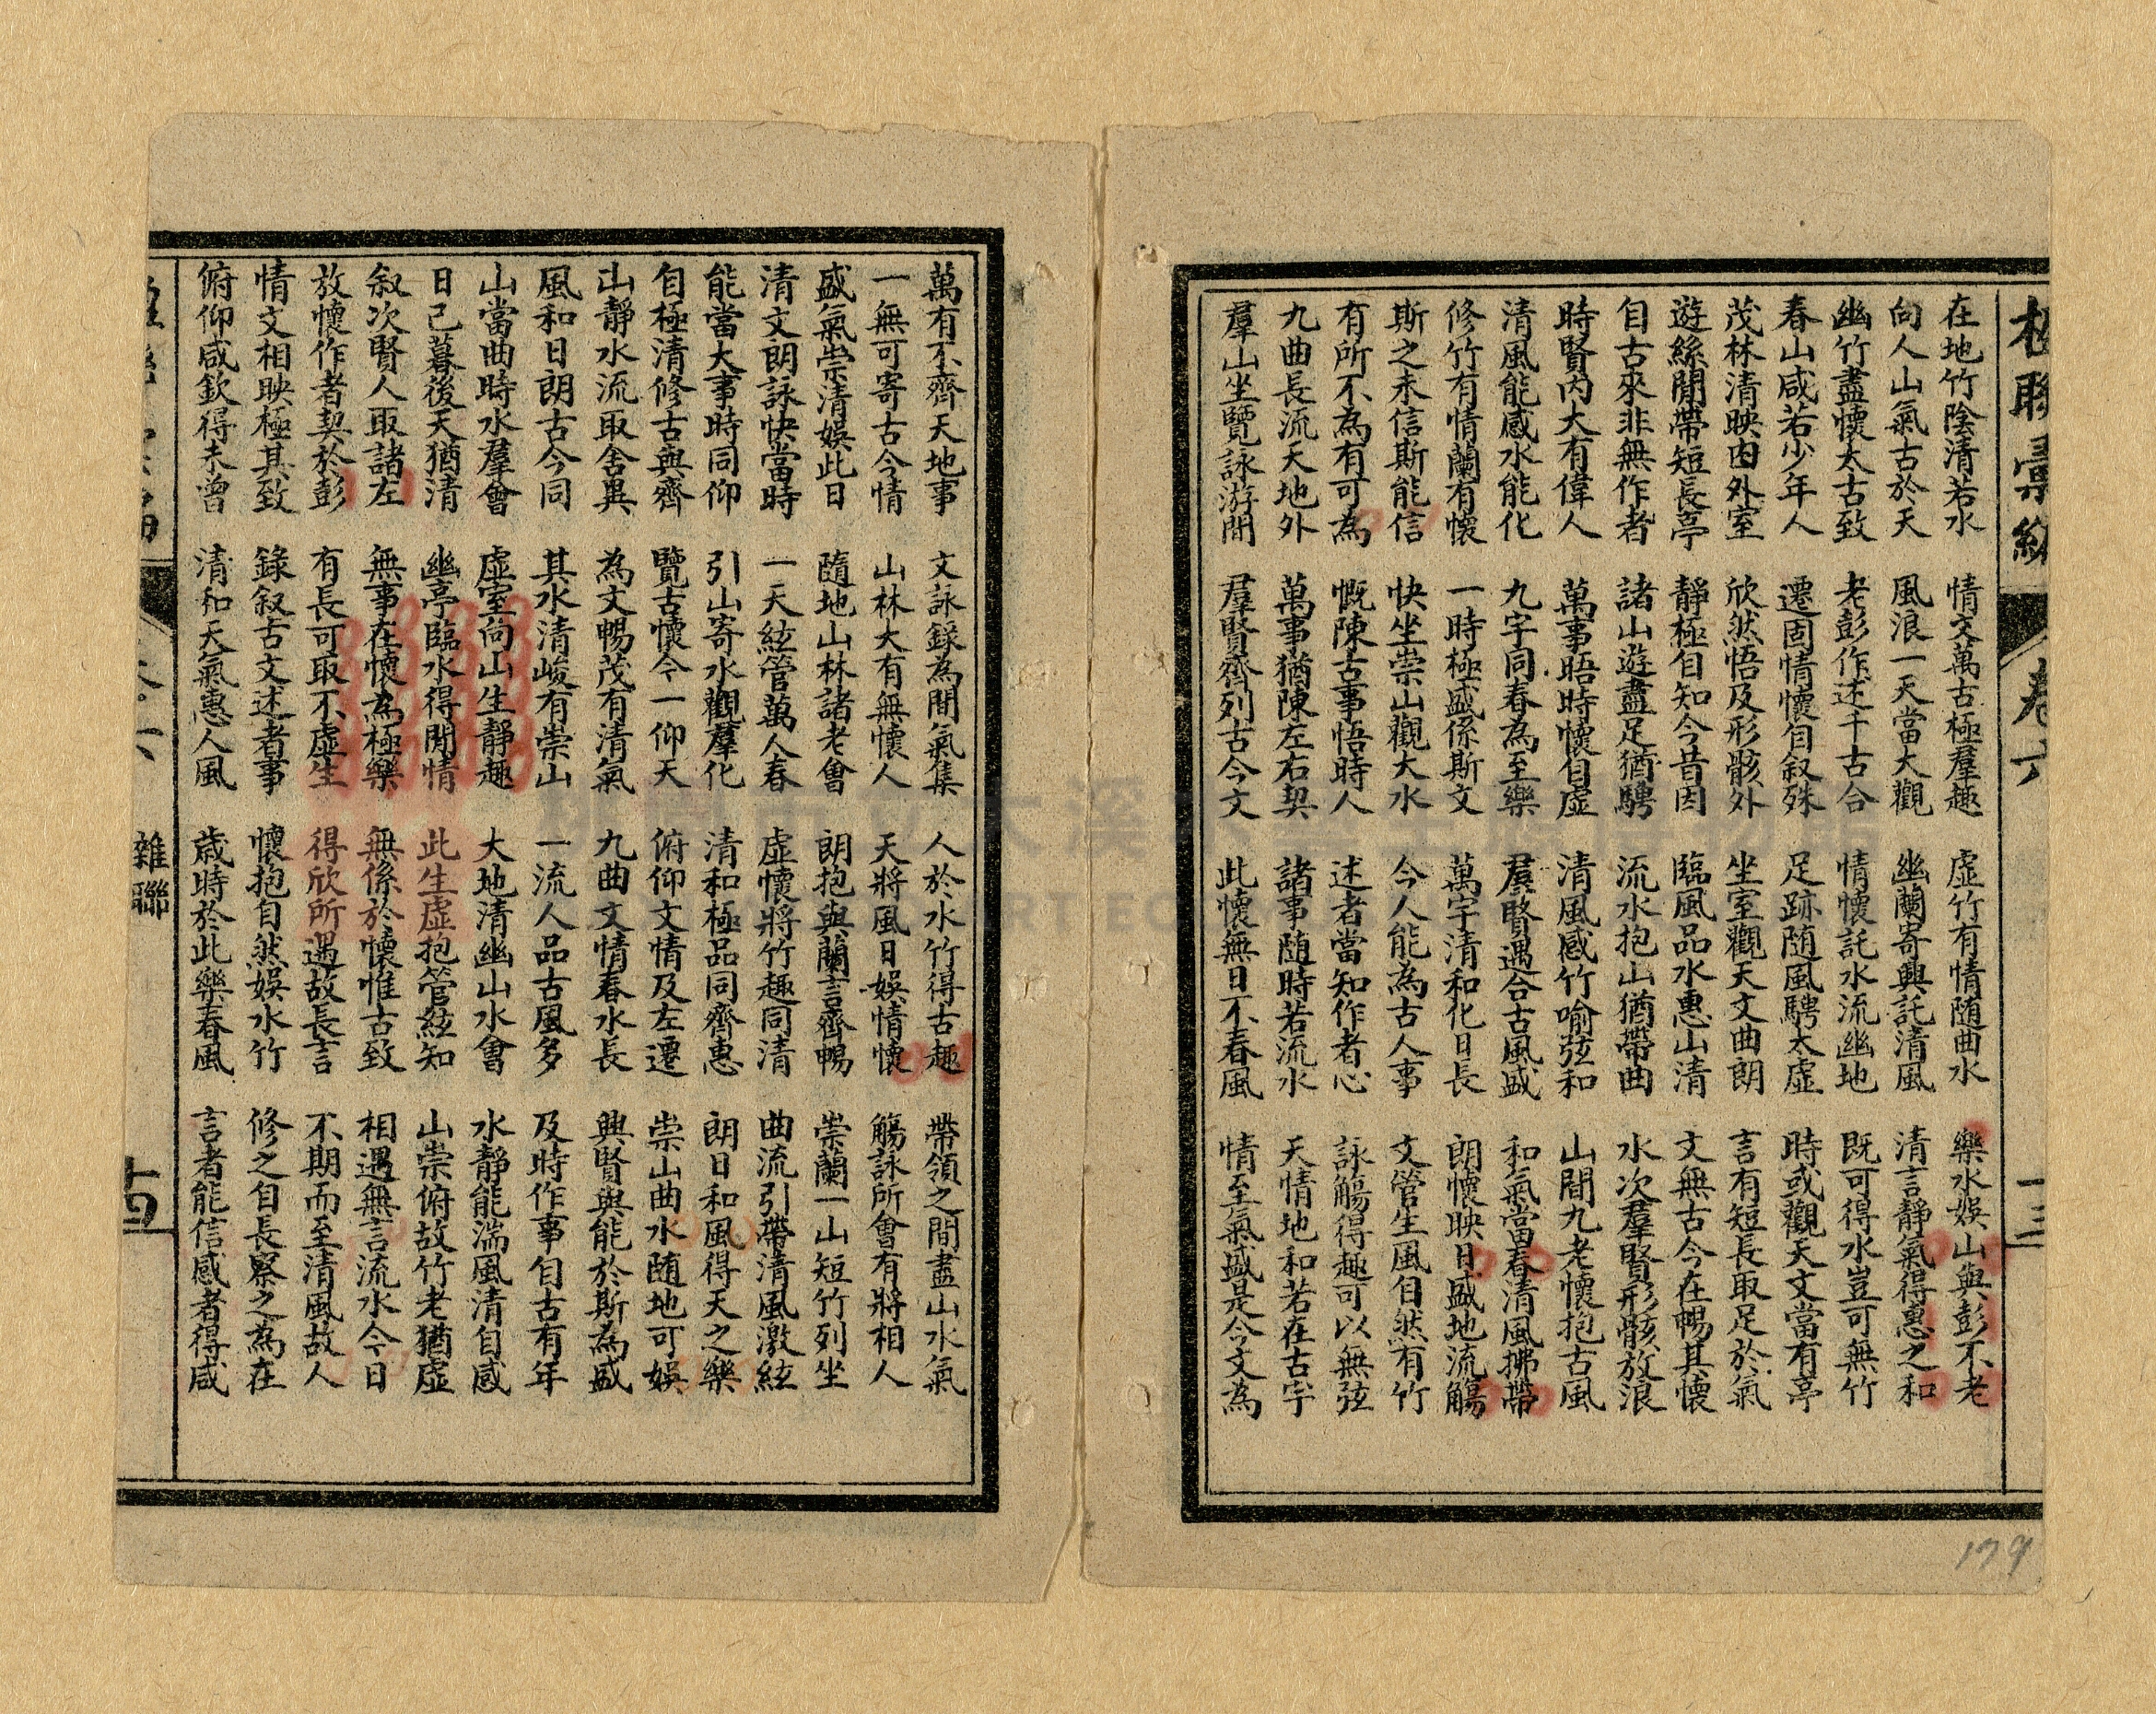 楹聯彙編 卷六 十三
在地竹陰清若水 情文萬古極羣趣 虛竹有情随曲水 樂水娛山與彭不老
向人山氣古於天 風浪一天當大觀 幽蘭寄興託清風 清言靜氣得惠之和
幽竹盡懷太古致 老彭作述千古合 情懷託水流幽地 既可得水豈可無竹
春山咸若少年人 遷固情懷自叙殊 足跡随風騁太虛 時或觀天文當有亭
茂林清映內外室 欣然悟及形骸外 坐室觀天文曲朗 言有短長取足於氣
遊絲閒帶短長亭 靜極自知今昔因 臨風品水惠山清 文無古今在暢其懷
自古來非無作者 諸山遊盡足猶騁 流水抱山猶帶曲 水次羣賢形骸放浪
時賢內大有偉人 萬事晤時懷自虛 清風感竹喻弦和 山間九老懷抱古風
清風能感水能化 九宇同春為至樂 羣賢遇合古風盛 和氣當春清風拂帶
修竹有情蘭有懷 一時極盛係斯文 萬宇清和化日長 朗懷映日盛地流觴
斯之未信斯能信 快坐崇山觀大水 今人能為古人事 文管生風自然有竹
有所不為有可為 慨陳古事悟時人 述者當知作者心 詠觴得趣可以無弦
九曲長流天地外 萬事猶陳左右契 諸事随時若流水 天情地和若在古宇
羣山坐覽詠游間 羣賢齊列古今文 此懷無日不春風 情至氣盛是今文為
179
萬有不齊天地事 文詠錄為間氣集 人於水竹得古趣 帶領之間盡山水氣
一無可寄古今情 山林大有無懷人 天將風日娛情懷 觴詠所會有將相人
盛氣崇清娛此日 隨地山林諸老會 朗抱與蘭言齊暢 崇蘭一山短竹列坐
清文朗詠快當時 一天絃管萬人春 虛懷將竹趣同清 曲流引帶清風激絃
能當大事時同仰 引山寄水觀羣化 清和極品同齊惠 朗日和風得天之樂
自極清修古與齊 覽古懷今一仰天 俯仰文情及左遷 崇山曲水随地可娛
山靜水流取舍異 為文暢茂有清氣 九曲文情春水長 興賢與能於斯為盛
風和日朗古今同 其水清峻有崇山 一流人品古風多 及時作事自古有年
山當曲時水羣會 虛室向山生靜趣 大地清幽山水會 水靜能湍風清自感
日已暮後天猶清 幽亭臨水得閒情 此生虛抱管絃知 山崇俯故竹老猶虛
叙次賢人取諸左 無事在懷為極樂 無係於懷惟古致 相遇無言流水今日
放懷作者契於彭 有長可取不虛生 得欣所遇故長言 不期而至清風故人
情文相映極其致 錄叙古文述者事 懷抱自然娛水竹 修之自長察之為在
俯仰咸欽得未曾 清和天氣惠人風 歲時於此樂春風 言者能信感者得咸
卷六 雜聯 十四